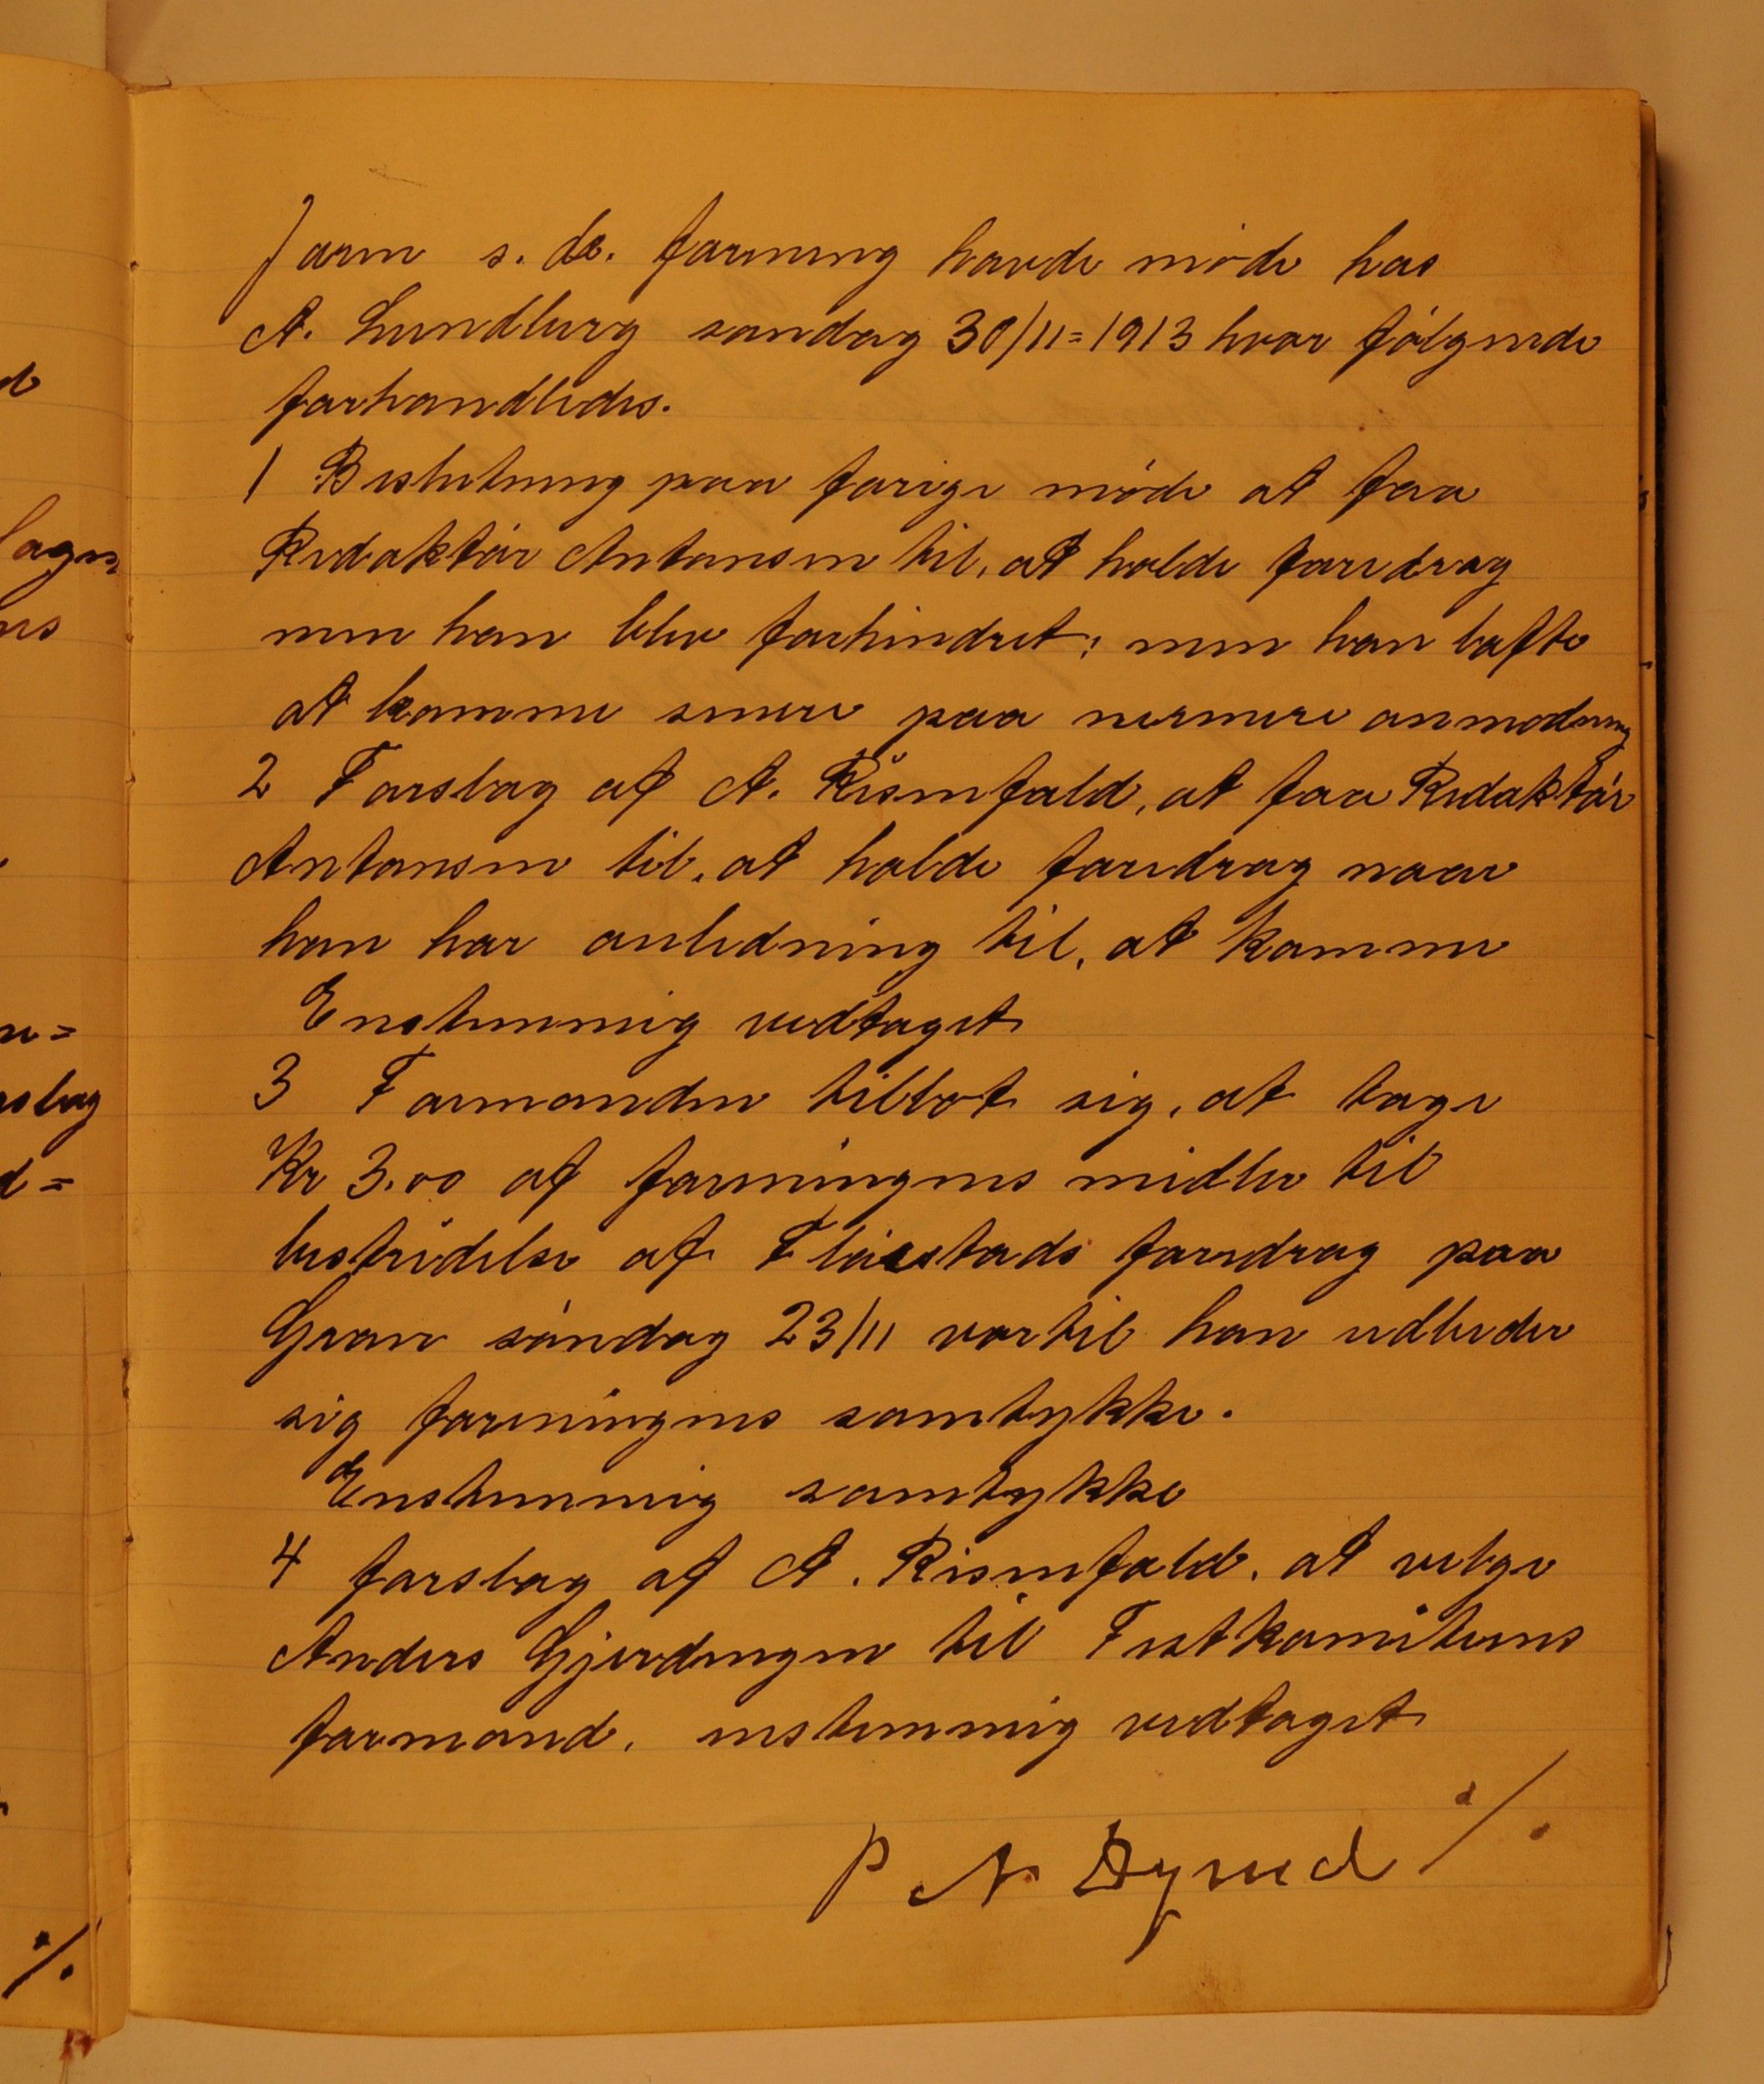 Jarn s. de. forening havde möde hos
A. Lundberg søndag 30/11=1913 hvor følgende
forhandledes.
1 Beslutning paa forige möde at faa
Redaktör Antonsen til, at holde foredrag
men han blev forhindret; men han lofte
at komme senere paa nermere anmodning
2 Forslag af A. Risenfald, at faa Redaktör
Antonsen til, at holde foredrag naar
han har anledning til, at komme
Enstemmig vedtaget
3 Formanden tillot sig, at tage
Kr 3.00 af foreningens midler til
bestridelse af foredrag paa
Gran söndag 23/11 vortil han udbeder
sig foreningens samtykke.
Enstemmig samtykke
4 forslag af A. Risenfald, at velge
Anders Gjerdingen til Festkomiteens
formand. enstemmig vedtaget
P N Dynud ./.
de
lagen
ns
n=
rslag
d=
./.